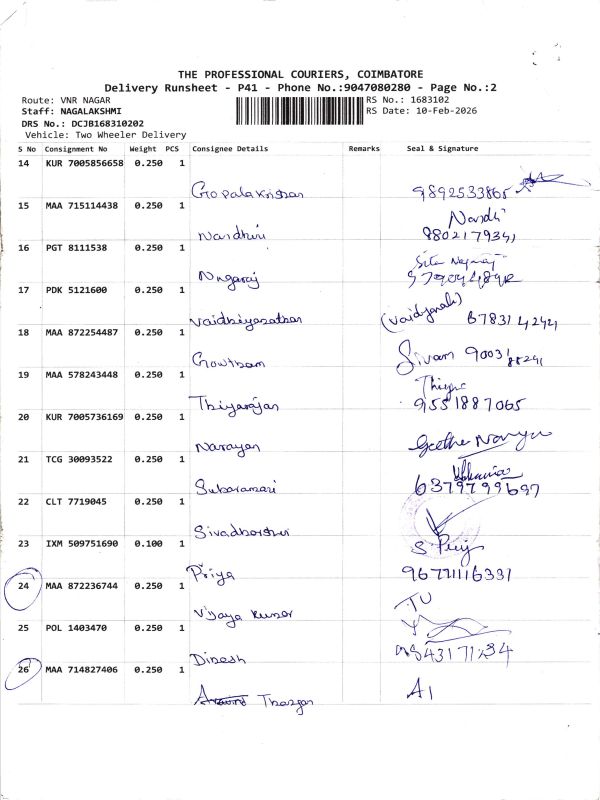 THE PROFESSIONAL COURIERS, COIMBATORE
Delivery Runsheet - P41 - Phone No.:9047080280 - Page No.:2
Route: VNR NAGAR
RS No.: 1683102
Staff: NAGALAKSHMI
RS Date: 10-Feb-2026
DRS No.: DCJB168310202
Vehicle: Two Wheeler Delivery
S No Consignment No Weight PCS Consignee Details Remarks Seal & Signature
14 KUR 7005856658 0.250 1
Gopalakrishnan 9892533865
15 MAA 715114438 0.250 1
Nandhi
Nandhini 8802179341
16 PGT 8111538 0.250 1
Nagaraj
17 PDK 5121600 0.250 1
Vaidhiyanathan (Vaidyanath) 67831 42421
18 MAA 872254487 0.250 1
Gowtham Sivam 9003188291
19 MAA 578243448 0.250 1
Thiyarajan 9551887065
20 KUR 7005736169 0.250 1
Narayan Geetha Narayan
21 TCG 30093522 0.250 1
Subaramani 6379799697
22 CLT 7719045 0.250 1
23 IXM 509751690 0.100 1
S Priy
Priya 96771116331
24 MAA 872236744 0.250 1
TU
Vijaya Kumar
25 POL 1403470 0.250 1
Dinesh 9843171234
26 MAA 714827406 0.250 1
A1